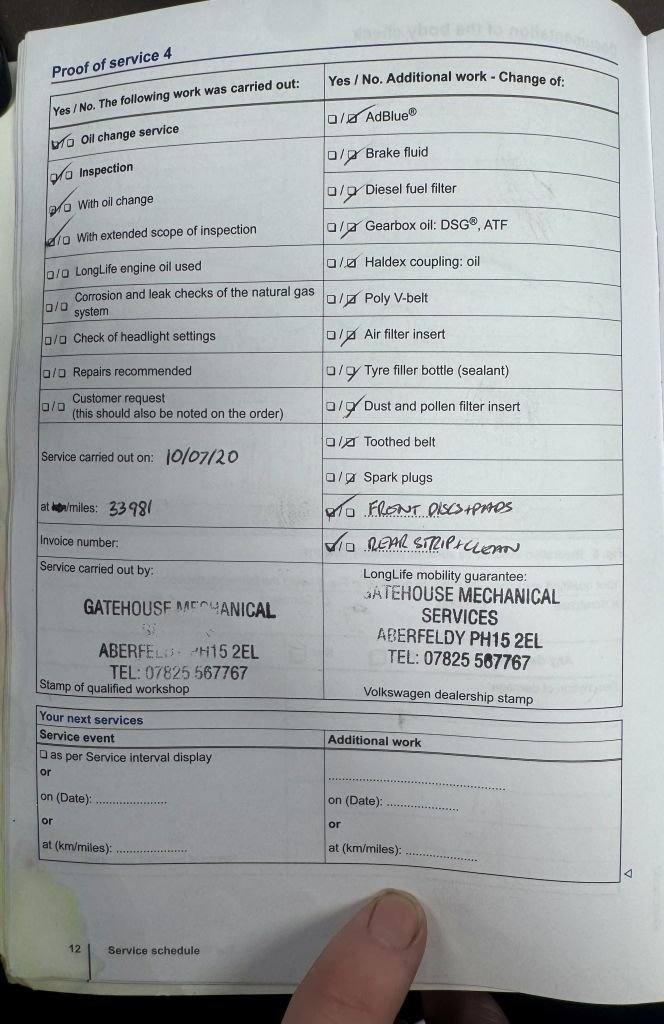 Proof of service 4
Yes / No. The following work was carried out:
☑/☐ Oil change service
☑/☐ Inspection
☑/☐ With oil change
☑/☐ With extended scope of inspection
☐/☐ LongLife engine oil used
☐/☐ Corrosion and leak checks of the natural gas
system
☐/☐ Check of headlight settings
☐/☐ Repairs recommended
☐/☐ Customer request
(this should also be noted on the order)
Service carried out on: 10/07/20
at km/miles: 33981
Invoice number:
Service carried out by:
GATEHOUSE MECHANICAL
ABERFELDY PH15 2EL
TEL: 07825 567767
Stamp of qualified workshop
Yes / No. Additional work - Change of:
☐/☑ AdBlue®
☐/☑ Brake fluid
☐/☑ Diesel fuel filter
☐/☑ Gearbox oil: DSG®, ATF
☐/☑ Haldex coupling: oil
☐/☑ Poly V-belt
☐/☑ Air filter insert
☐/☑ Tyre filler bottle (sealant)
☐/☑ Dust and pollen filter insert
☐/☑ Toothed belt
☐/☑ Spark plugs
☑/☐ FRONT DISCS+PADS
☑/☐ REAR STRIP+CLEAN
LongLife mobility guarantee:
GATEHOUSE MECHANICAL
SERVICES
ABERFELDY PH15 2EL
TEL: 07825 567767
Volkswagen dealership stamp
Your next services
Service event
☐ as per Service interval display
or
on (Date): ....................
or
at (km/miles): ....................
Additional work
..................................................
on (Date): ....................
or
at (km/miles): ....................
12 Service schedule